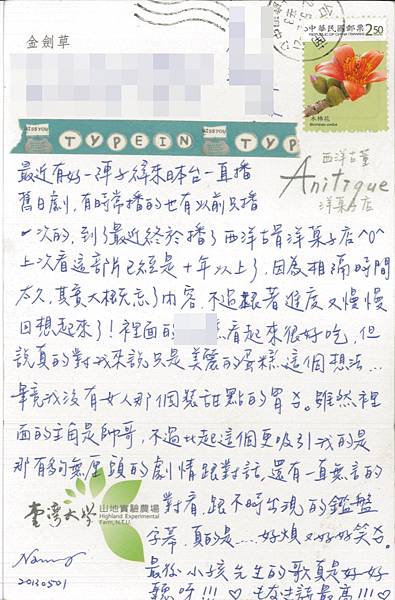 金劍草
中華民國郵票
REPUBLIC OF CHINA (TAIWAN)
2.50
木棉花
Bombax ceiba
MISS YOU
TYPEIN
MISS YOU
TYP
西洋古董
Anitique
洋菓子店
最近有好一陣子緯來日本台一直播
舊日劇，有時常播的也有以前只播
一次的，到了最近終於播了西洋古董洋菓子店^0^
上次看這部片已經是十年以上了，因為相隔時間
太久，其實大概忘了內容，不過跟著進度又慢慢
回想起來了！裡面的 看起來很好吃，但
說真的對我來說只是美麗的蛋糕這個想法...
畢竟我沒有女人那個裝甜點的胃。雖然裡
面的主角是帥哥，不過比起這個更吸引我的是
那有夠無厘頭的劇情跟對話，還有一直無言的
對看，跟不時出現的鑑盤
字幕，真的是...好煩又好好笑。
最後小孩先生的歌真是好好
聽呀!!! ♡ 最高!!! ♡
臺灣大學
山地實驗農場
Highland Experimental
Farm, N.T.U.
Nancy
20130501